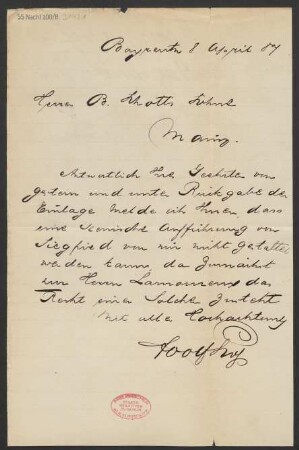 55 Nachl 100/B,
Bayreuth 8 April 87
Herrn B. Schotts Söhne
Mainz.
Antwortlich Ihres Geehrten von
gestern und unter Rückgabe der
Einlage melde ich Ihnen dass
eine Scenische Aufführung von
Siegfried von mir nicht gestattet
werden kann da Zunächst
nur Herrn Lamoureux das
Recht einer Solche zusteht
Mit aller Hochachtung